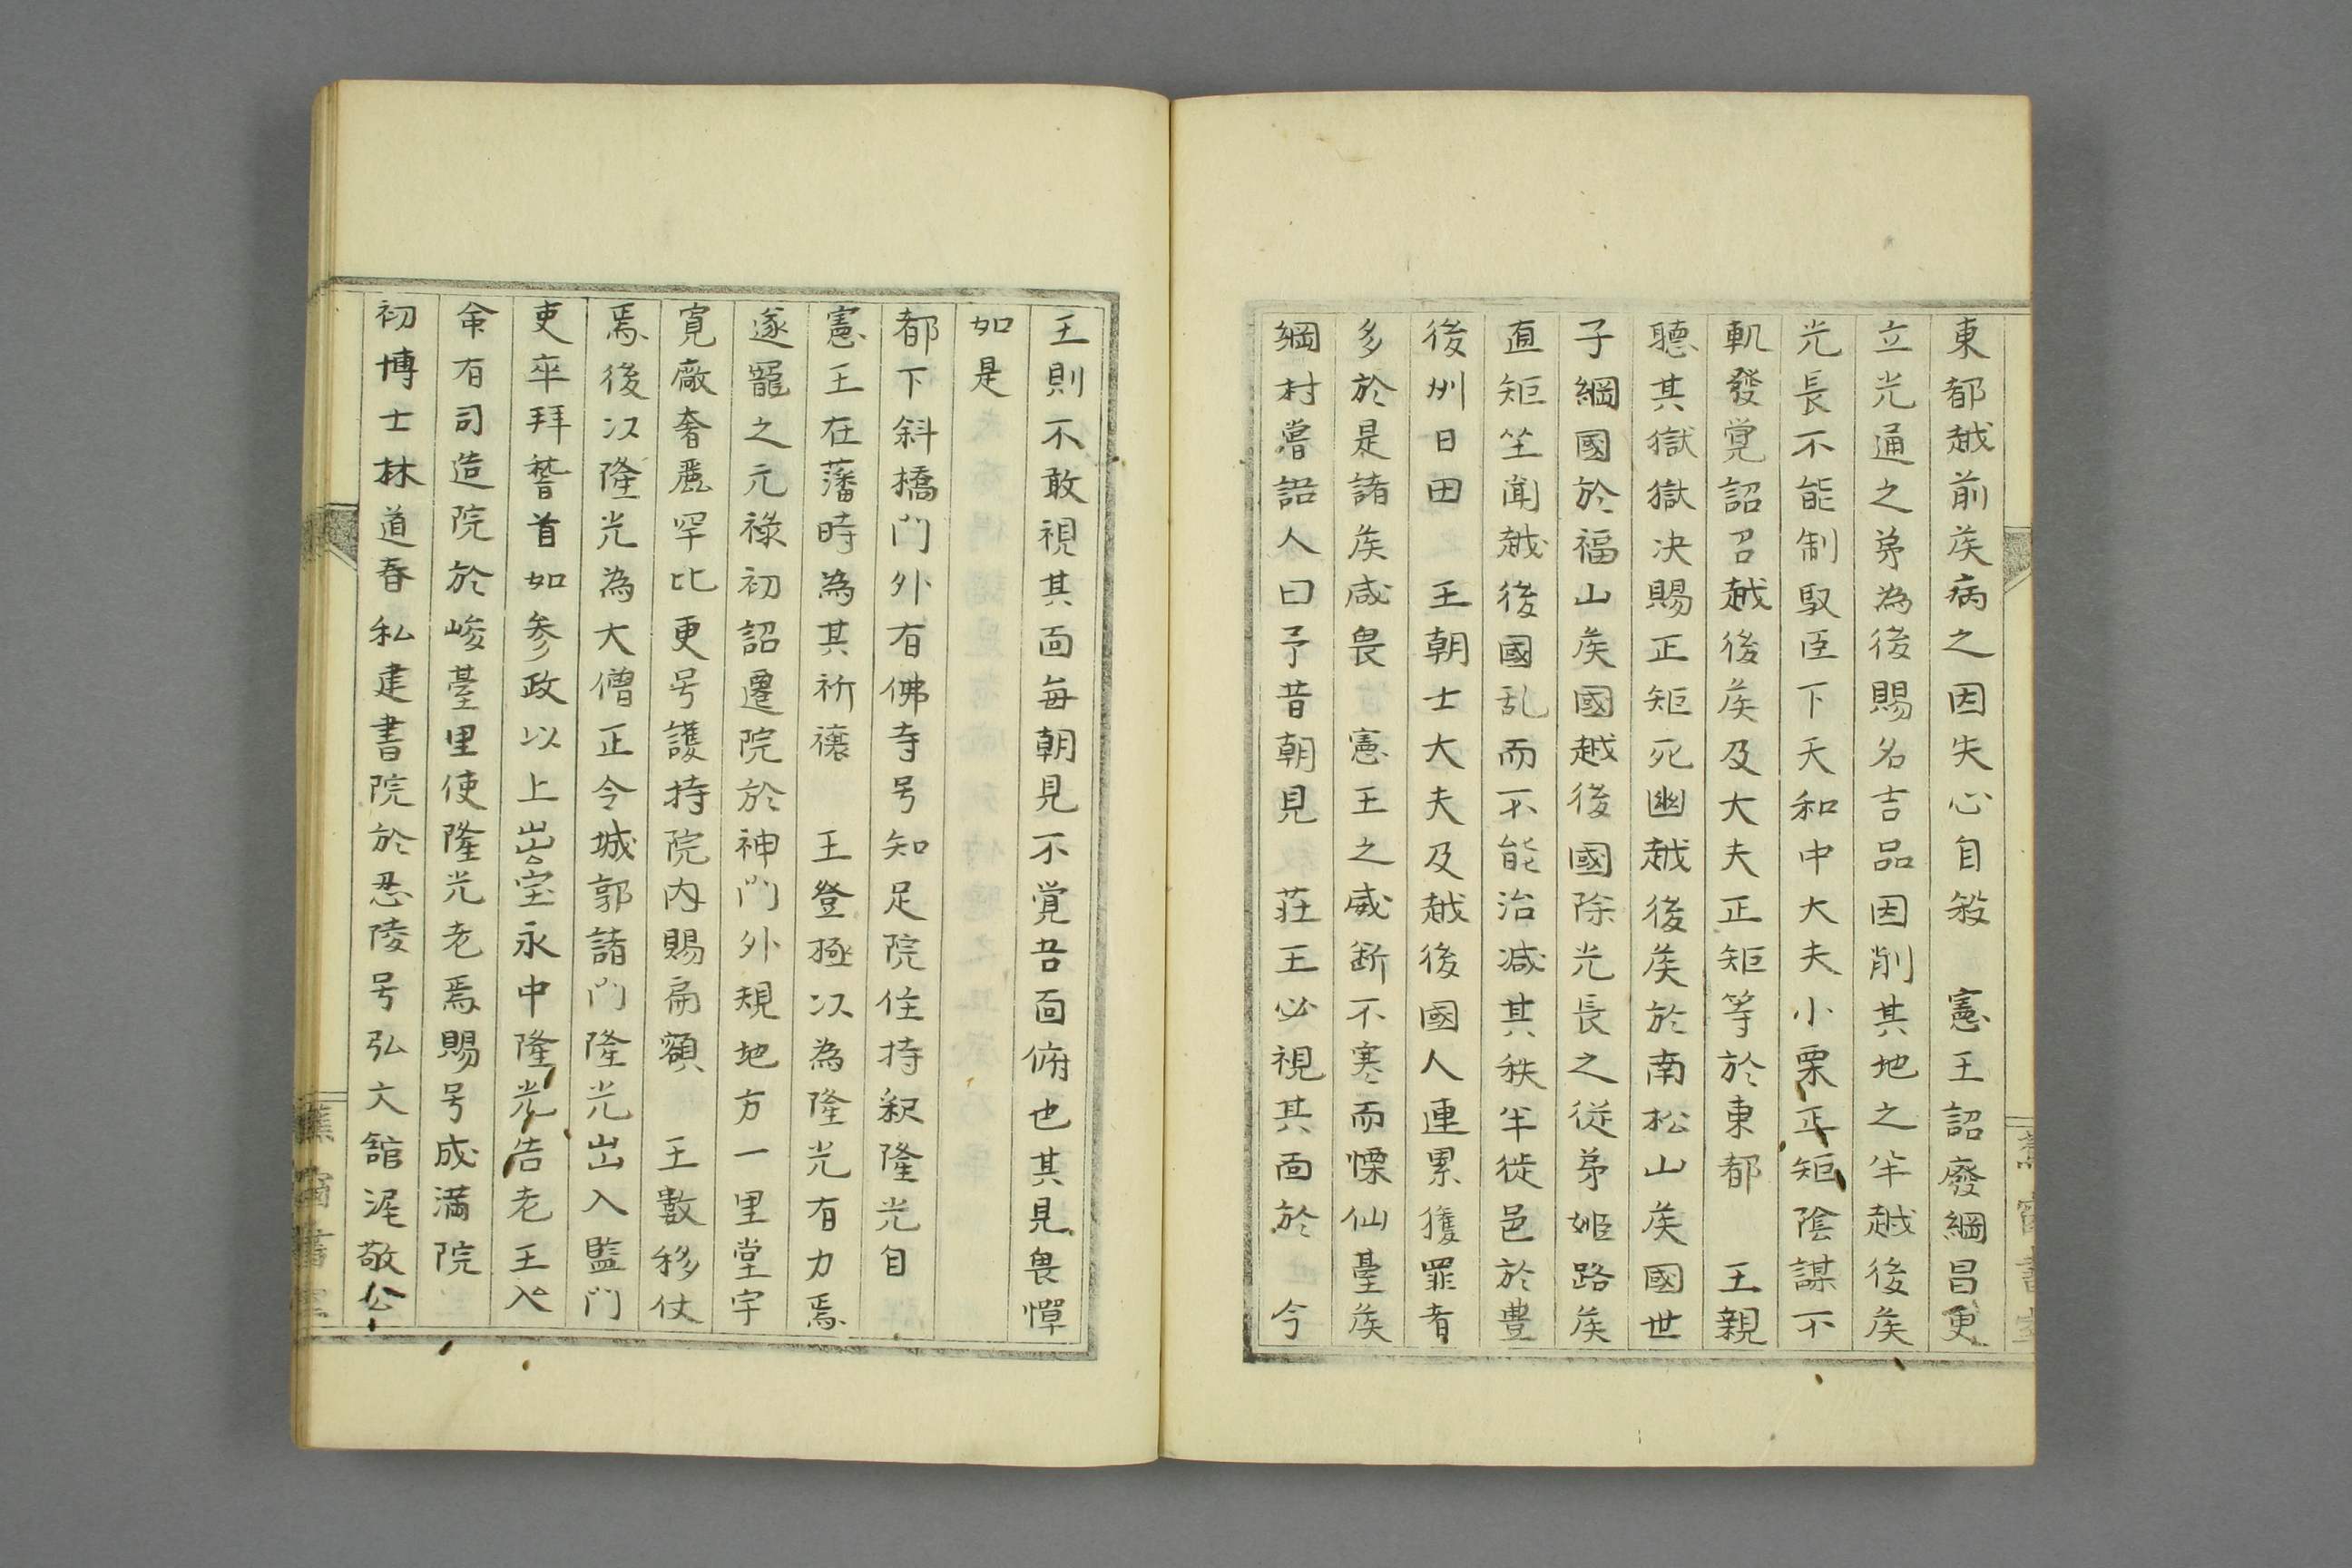 東都越前侯病之因失心自殺　憲王詔廢綱昌更
立光通之弟為後賜名吉品因削其地之半越後侯
光長不能制馭臣下天和中大夫小栗正矩陰謀不
軌發覚詔召越後侯及大夫正矩等於東都　王親
聴其獄獄决賜正矩死幽越後侯於南松山侯國世
子綱國於福山侯國越後國除光長之従弟姫路侯
直矩坐聞越後國乱而不能治减其秩半徙邑於豊
後州日田　王朝士大夫及越後國人連累獲罪者
多於是諸侯咸畏　憲王之威断不寒而慄仙臺侯
綱村嘗語人曰予昔朝見　荘王必視其面於　今
王則不敢視其面毎朝見不覚吾面俯也其見畏憚
如是
都下斜橋門外有佛寺号知足院住持釈隆光自
憲王在藩時為其祈禳　王登極以為隆光有力焉
遂寵之元祿初詔遷院於神門外規地方一里堂宇
寛廠奢麗罕比更号護持院内賜扁額　王數移仗
焉後以隆光為大僧正令城郭諸門隆光出入監門
吏卒拜稽首如参政以上出宝永中隆光告老王
命有司造院於峻臺里使隆光老焉賜号成満院
初博士林道春私建書院於忍陵号弘文館泥敬公
蕉窗書室